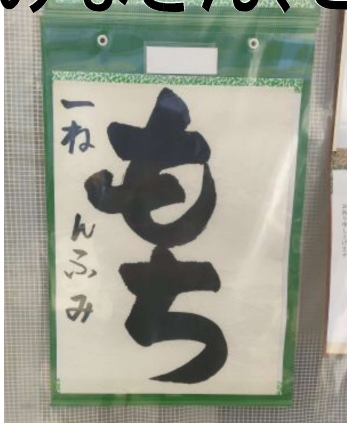 もち
一ね んふみ